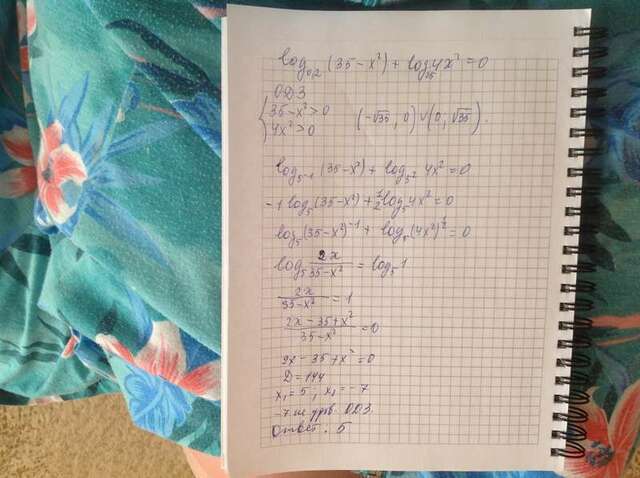 log₀,₂(35-x²) + log₂₅4x² = 0
ОДЗ
{ 35-x²>0
{ 4x²>0 (-√35; 0)∪(0; √35).
log₅₋₁(35-x²) + log₅₂4x² = 0
-1 log₅(35-x²) + ½log₅4x² = 0
log₅(35-x²)⁻¹ + log₅(4x²)^½ = 0
log₅ 2x/(35-x²) = log₅1
2x/(35-x²) = 1
(2x-35+x²)/(35-x²) = 0
2x - 35 + x² = 0
D = 144
x₁ = 5, x₂ = -7
-7 ОДЗ
Ответ: 5